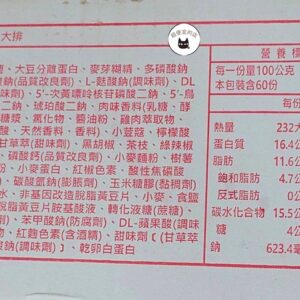 大排
、大豆分離蛋白、麥芽糊精、多磷酸鈉
鈉(品質改良劑)、L-麩酸鈉(調味劑)、DL
)、5'-次黃嘌呤核苷磷酸二鈉、5'-鳥
、琥珀酸二鈉、肉味香料(乳糖、酵
糖、氮化合、醬油粉、雞肉萃取物、
酸、天然香料、香料)、小蘇菇、檸檬酸
甘草萃(甜味劑)、黑胡椒、茶枝、綠辣椒
磷酸鈣(品質改良劑)、小麥麵粉、樹薯
粉、小麥蛋白、紅椒色素、酸性焦磷酸
、碳酸氫鈉(膨脹劑)、玉米糖膠(黏稠劑)
水、非基因改造脫脂黃豆片、小麥、食鹽
脫脂黃豆片胺基酸液、轉化液糖(蔗糖)、
、苯甲酸鈉(防腐劑)、DL-蘋果酸(調味劑)
、紅麴色素(含酒精)、甜味劑〔(甘草萃
鈉(調味劑)〕、乾卵白蛋白
營養標
每一份量100公克
本包裝含60份
每份
熱量 232大
蛋白質 16.4公
脂肪 11.6公
飽和脂肪 4.7公
反式脂肪 0公
碳水化合物 15.5公
糖 4公
鈉 623.4毫